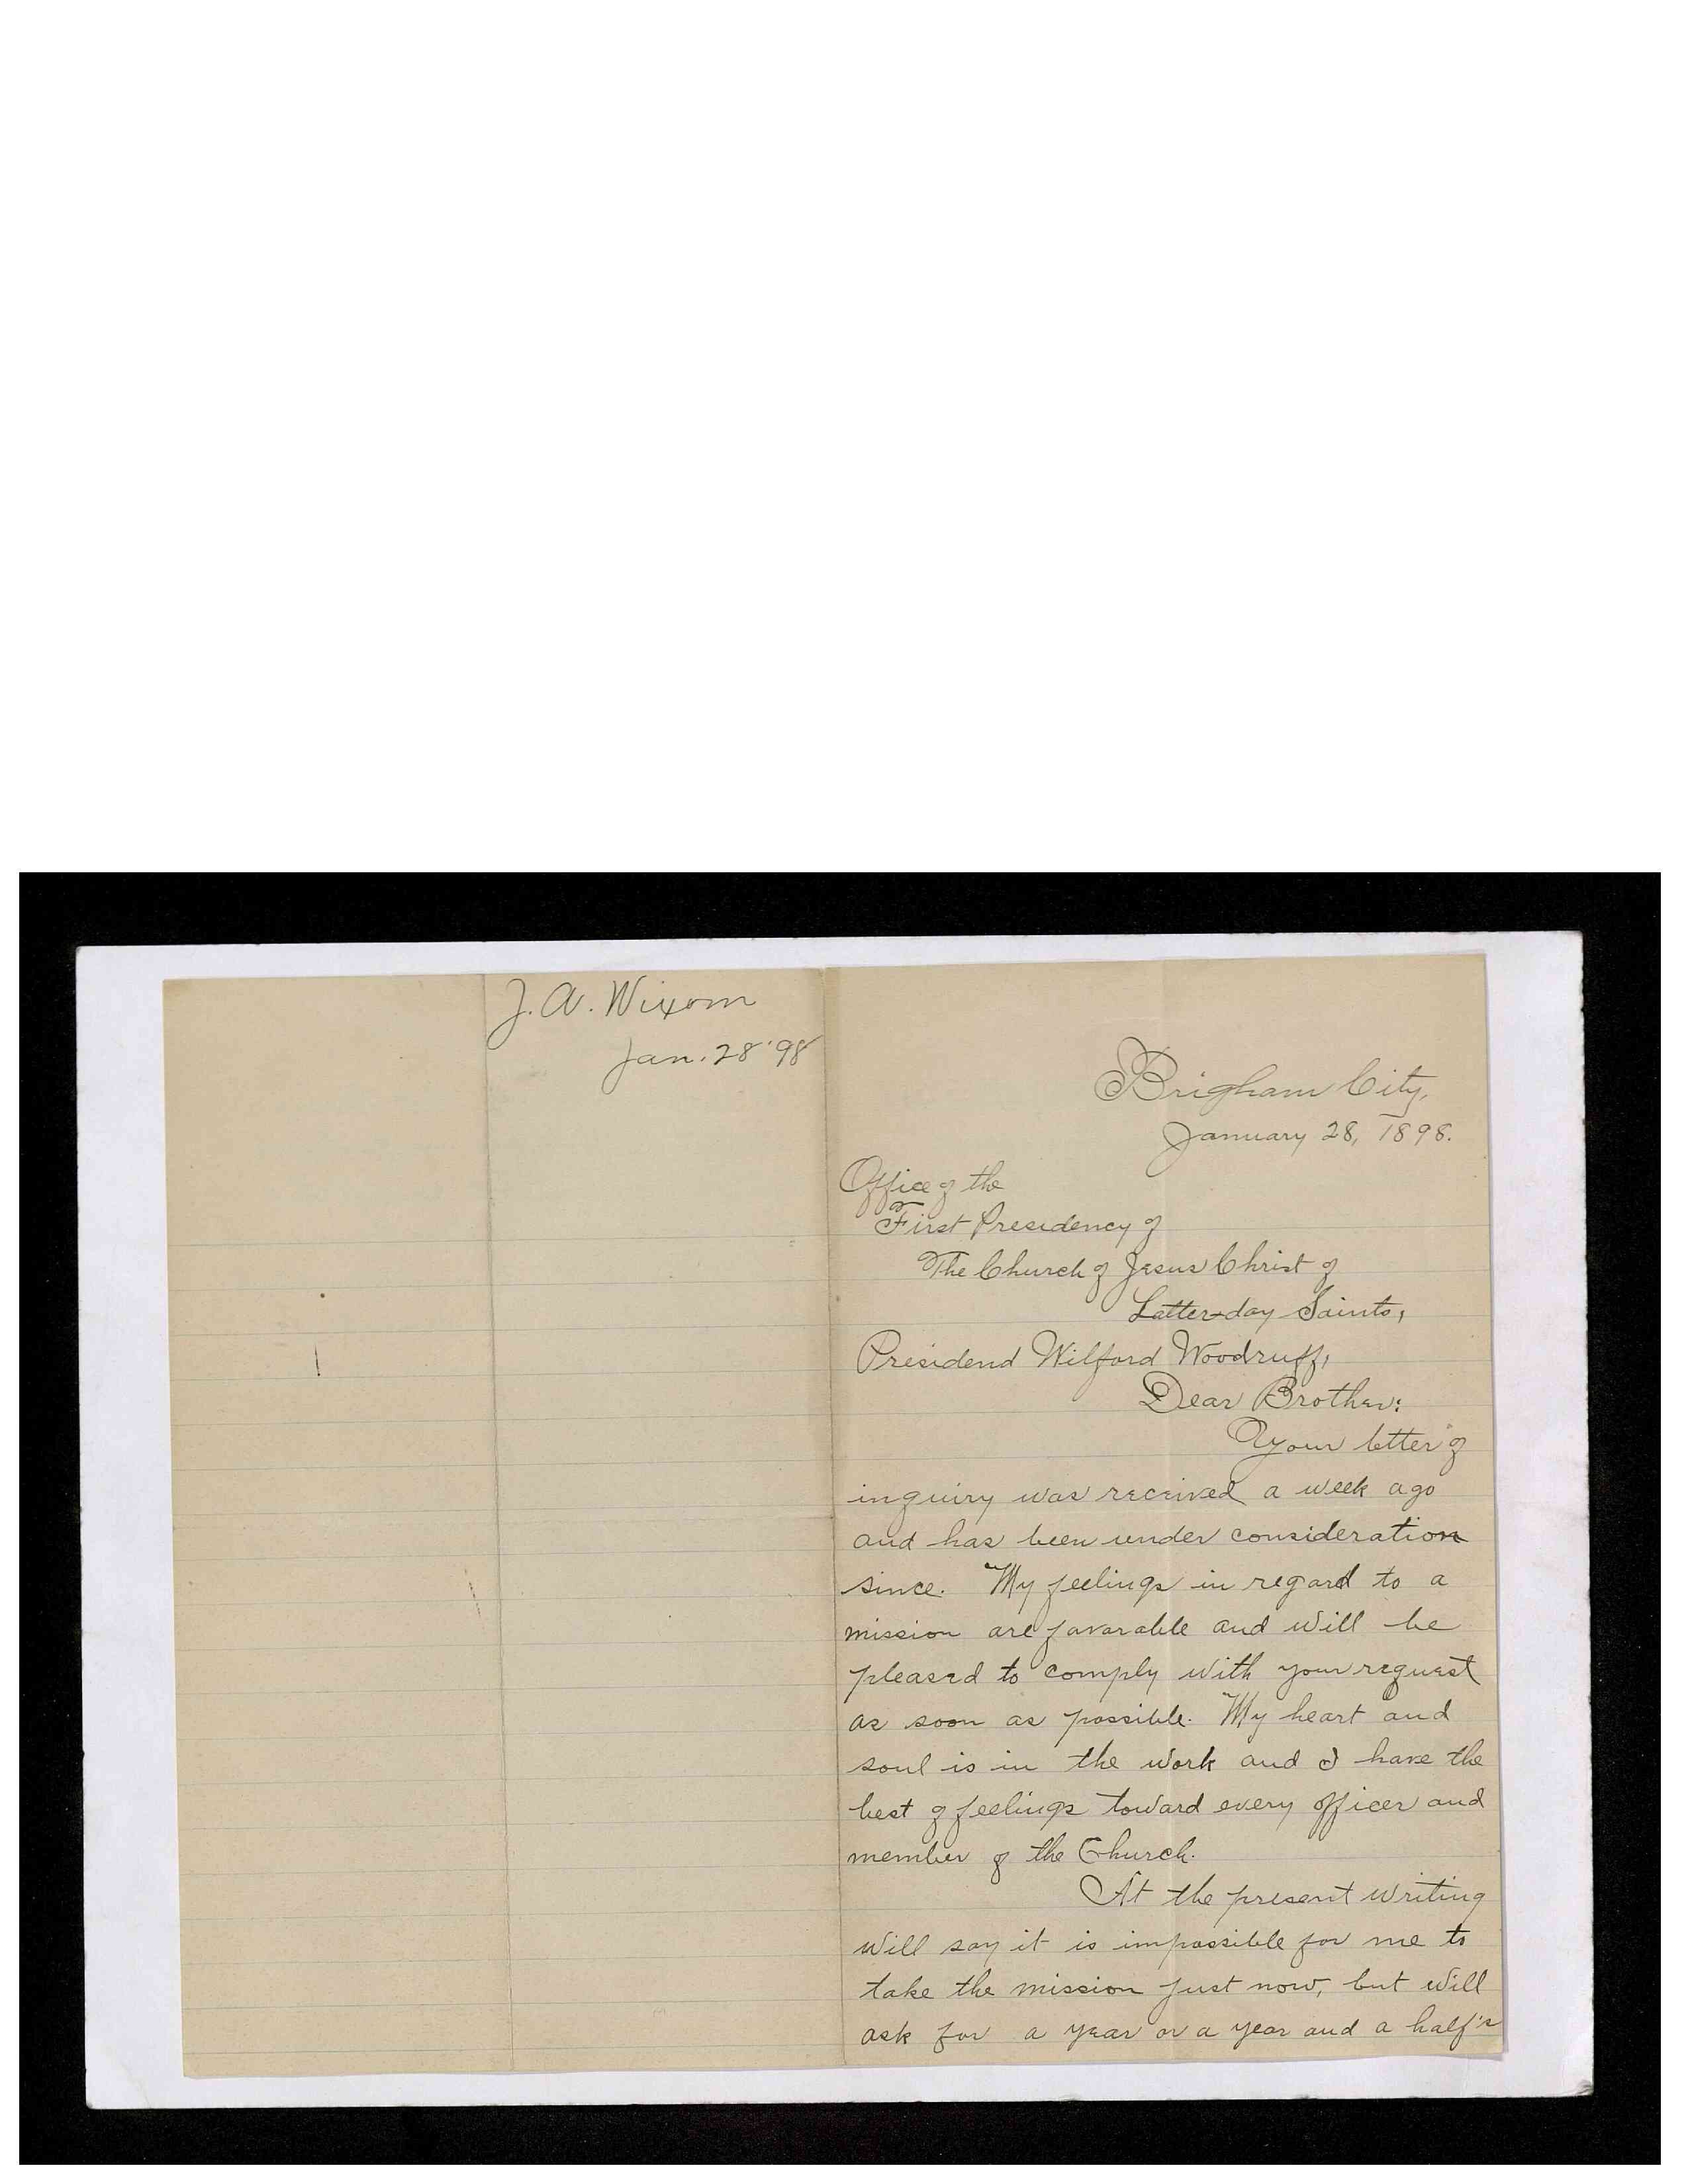 J. A. Wixom
Jan. 28 '98
Brigham City,
January 28, 1898.
Office of the
First Presidency of
The Church of Jesus Christ of
Latter-day Saints,
Presidend Wilford Woodruff,
Dear Brother:
Your letter of
inquiry was received a week ago
and has been under consideration
since. My feelings in regard to a
mission are favorable and will be
pleased to comply with your request
as soon as possible. My heart and
soul is in the work and I have the
best of feelings toward every officer and
member of the Church.
At the present writing
will say it is impossible for me to
take the mission just now, but will
ask for a year or a year and a half's